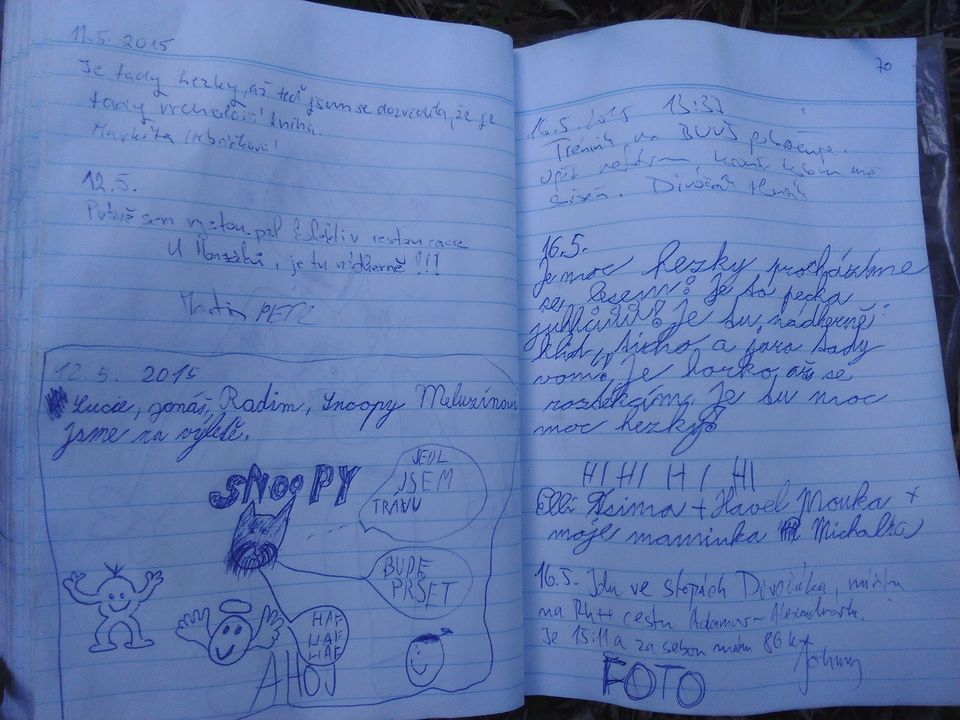 11.5. 2015
Je tady hezky, až teď jsem se dozvěděla, že je
tady vrcholová kniha.
Markéta
12.5.
sem vystoupal kolektiv restaurace
U , je tu nádherně !!!
Martin PETZ
12.5. 2015
Lucie, Jonáš, Radim, Snoopy Meluzínovi
jsme na výletě.
SNOOPY
JEDL
JSEM
TRÁVU
BUDE
PRŠET
HAF
HAF
HAF
AHOJ
70
16.5.2015 13:37
Trénink na BUVŠ pokračuje.
Opět , kolem mě
Divočák
16.5.
Je moc hezky procházíme
se lesem. Je to pecka
Je tu nádherně
klid, ticho a jaro tady
voní, je horko, až se
roztékám. Je tu moc
moc hezky!
HI HI HI HI
Elli Asima + Havel Mouka +
moje maminka Michalka
16.5. Jdu ve stopách Divočáka, mířím
na cestu Adamov - Alexandrovka.
Je 15:11 a za sebou mám 86 km
Johny
FOTO